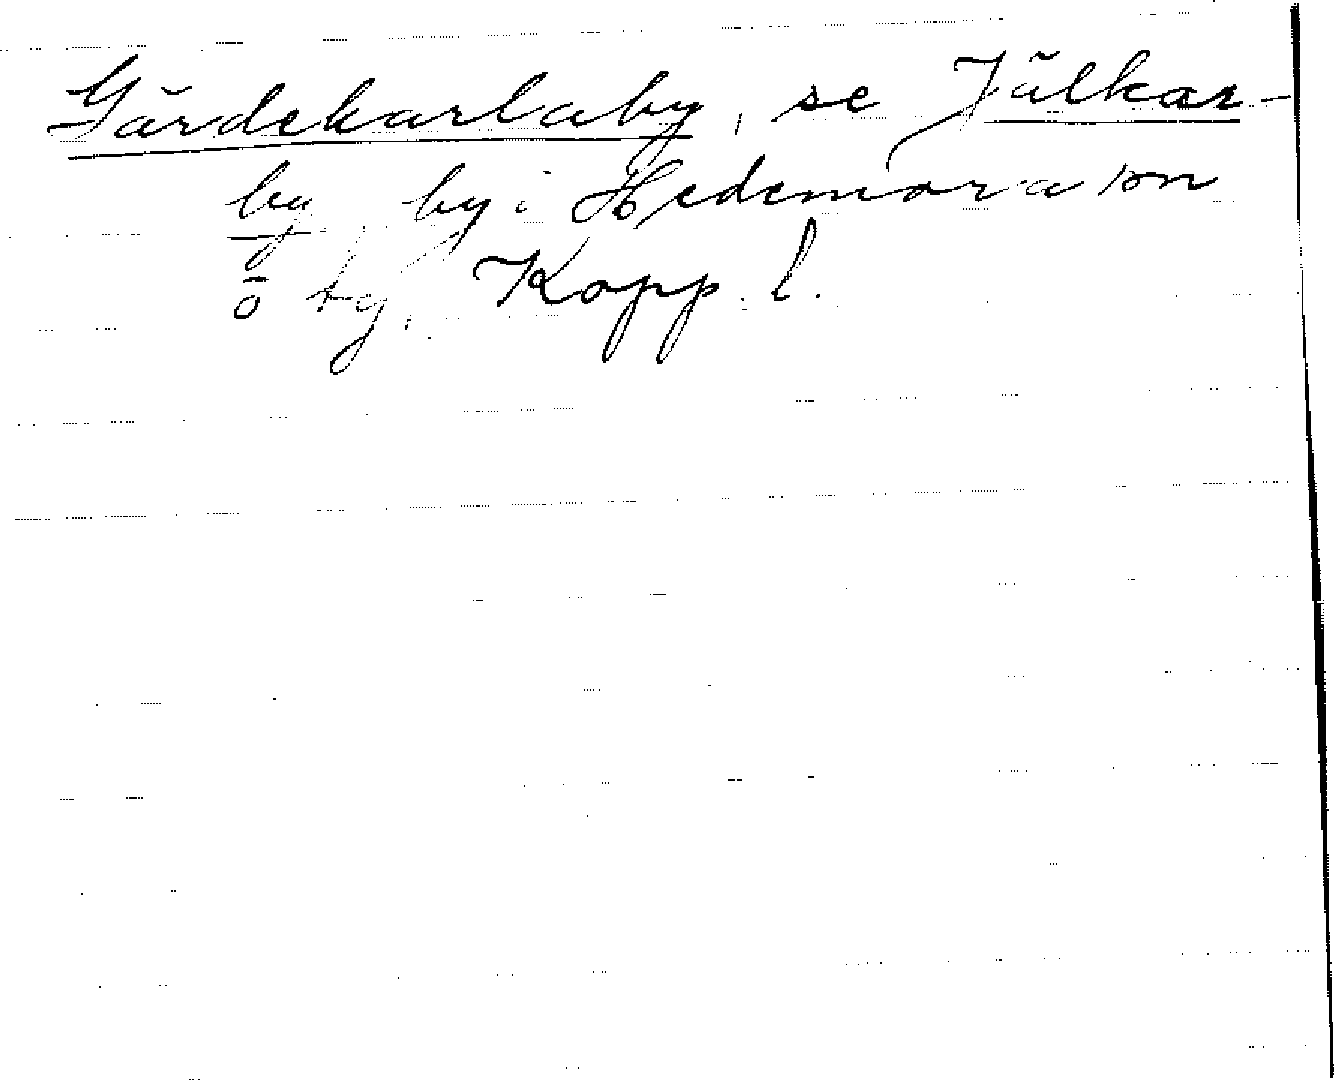 Gärdekarlaby, se Jälkar-
by by i Hedemora sn
o tg. Kopp. l.